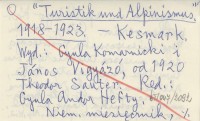 "Turistik und Alpinismus,"
1918-1923. – Kesmark.
Wyd.: Gyula Komarnicki i
János Vigyázó, od 1920
Theodor Sauter. Red.:
Gyula Andor Hefty.
Niem. miesięcznik, ·/.